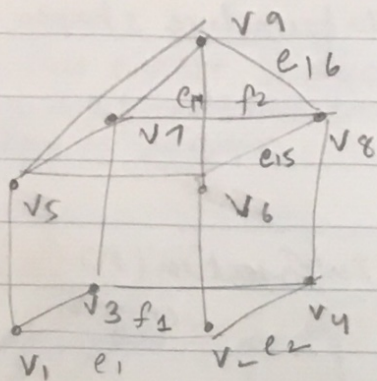 v9
e16
em f2
v7 v8
e15
v5 v6
v3 f1 v4
v1 e1 v2 e2